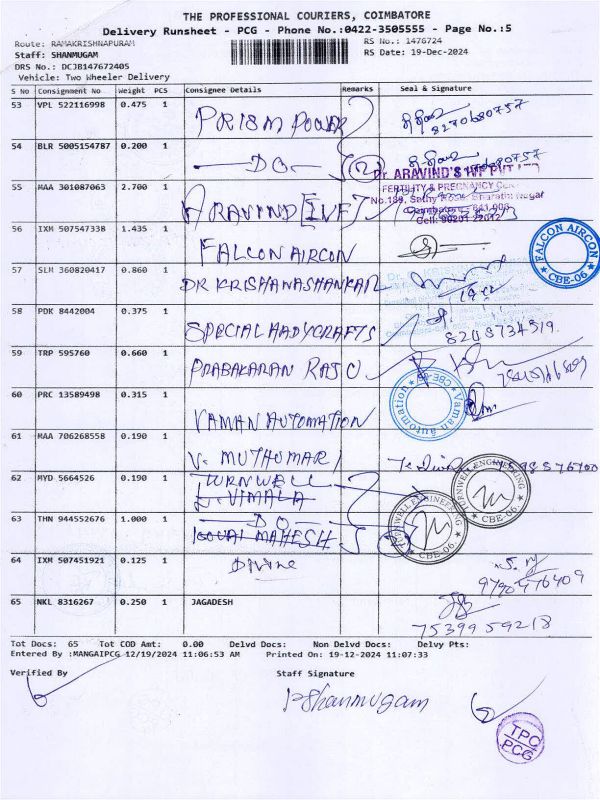 THE PROFESSIONAL COURIERS, COIMBATORE
Delivery Runsheet - PCG - Phone No.:0422-3505555 - Page No.:5
Route: RAMAKRISHNAPURAM
RS No.: 1476724
Staff: SHANMUGAM
RS Date: 19-Dec-2024
DRS No.: DCJB147672405
Vehicle: Two Wheeler Delivery
S No Consignment No Weight PCS Consignee Details Remarks Seal & Signature
53 VPL 522116998 0.475 1 PRISM POWER 8270680757
54 BLR 5005154787 0.200 1 DO 2
Dr. ARAVIND'S IVF PVT LTD
FERTILITY & PREGNANCY
No.189, Sathy Road, Bharathi Nagar
55 MAA 301087063 2.700 1 ARAVIND IVF
56 IXM 507547338 1.435 1 FALCON AIRCON
FALCON AIRCON
CBE-06
57 SLM 360820417 0.860 1 DR KRISHANASHANKAR
58 PDK 8442004 0.375 1 SPECIAL HADYCRAFTS 8248734919
59 TRP 595760 0.660 1 PRABAKARAN RAJ
60 PRC 13589498 0.315 1 VAMAN AUTOMATION
Vaman automation
CBE-06
61 MAA 706268558 0.190 1 V. MUTHUMARI
62 MYD 5664526 0.190 1 TURNWELL
VIMALA
TURNWELL ENGINEERING
CBE-06
63 THN 944552676 1.000 1 DO
KOVAI MAHESH
TURNWELL ENGINEERING
CBE-06
64 IXM 507451921 0.125 1 Divine
9790476409
65 NKL 8316267 0.250 1 JAGADESH
7539959218
Tot Docs: 65 Tot COD Amt: 0.00 Delvd Docs: Non Delvd Docs: Delvy Pts:
Entered By :MANGAIPCG 12/19/2024 11:06:53 AM Printed On: 19-12-2024 11:07:33
Verified By Staff Signature
P Shanmugam
TPC
PCG